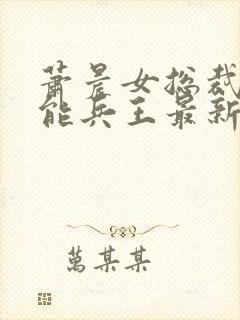 萧晨女总裁
能兵王最新
万某某